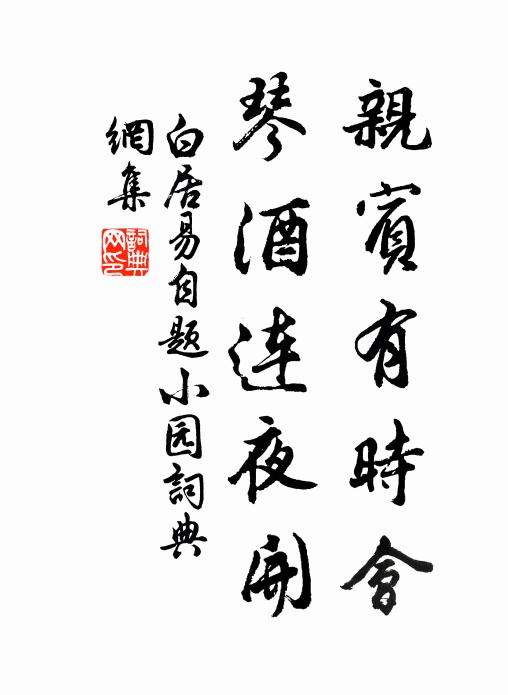 親賓有時會
琴酒连夜開
白居易自题小园詞典
網集
詞典
网印